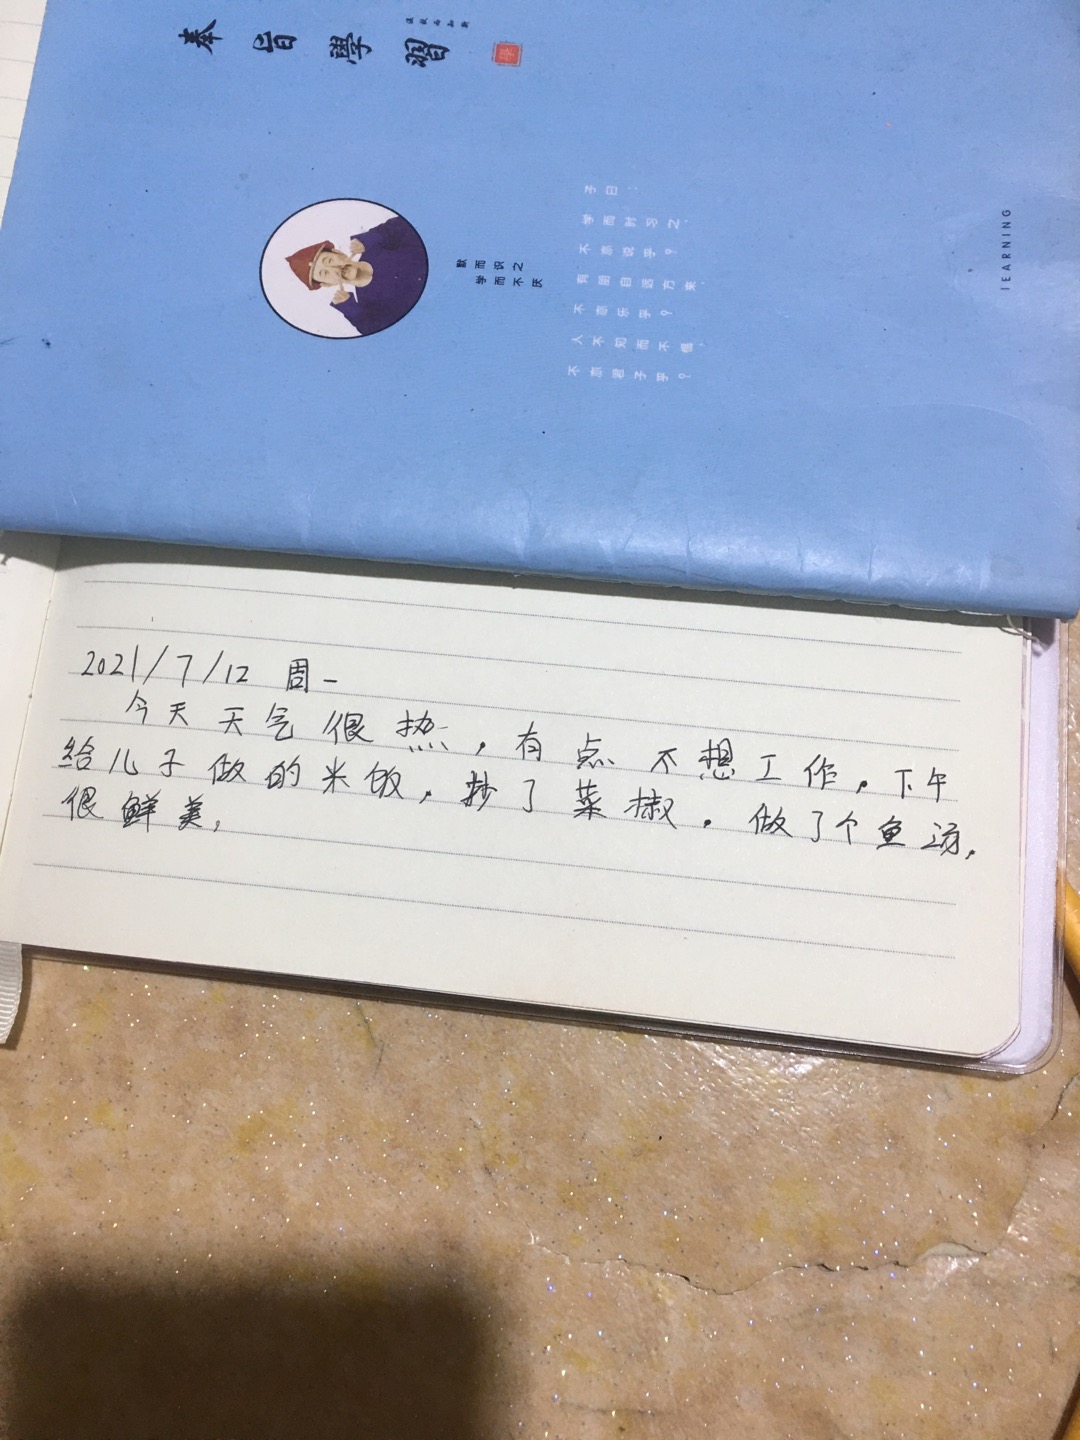 奉旨學習
學
默而识之
学而不厌
子曰：
学而时习之，
不亦说乎？
有朋自远方来，
不亦乐乎？
人不知而不愠，
不亦君子乎？
lEARNING
2021/7/12 周一
今天天气很热，有点不想工作，下午
给儿子做的米饭，抄了菜椒，做了个鱼汤，
很鲜美，